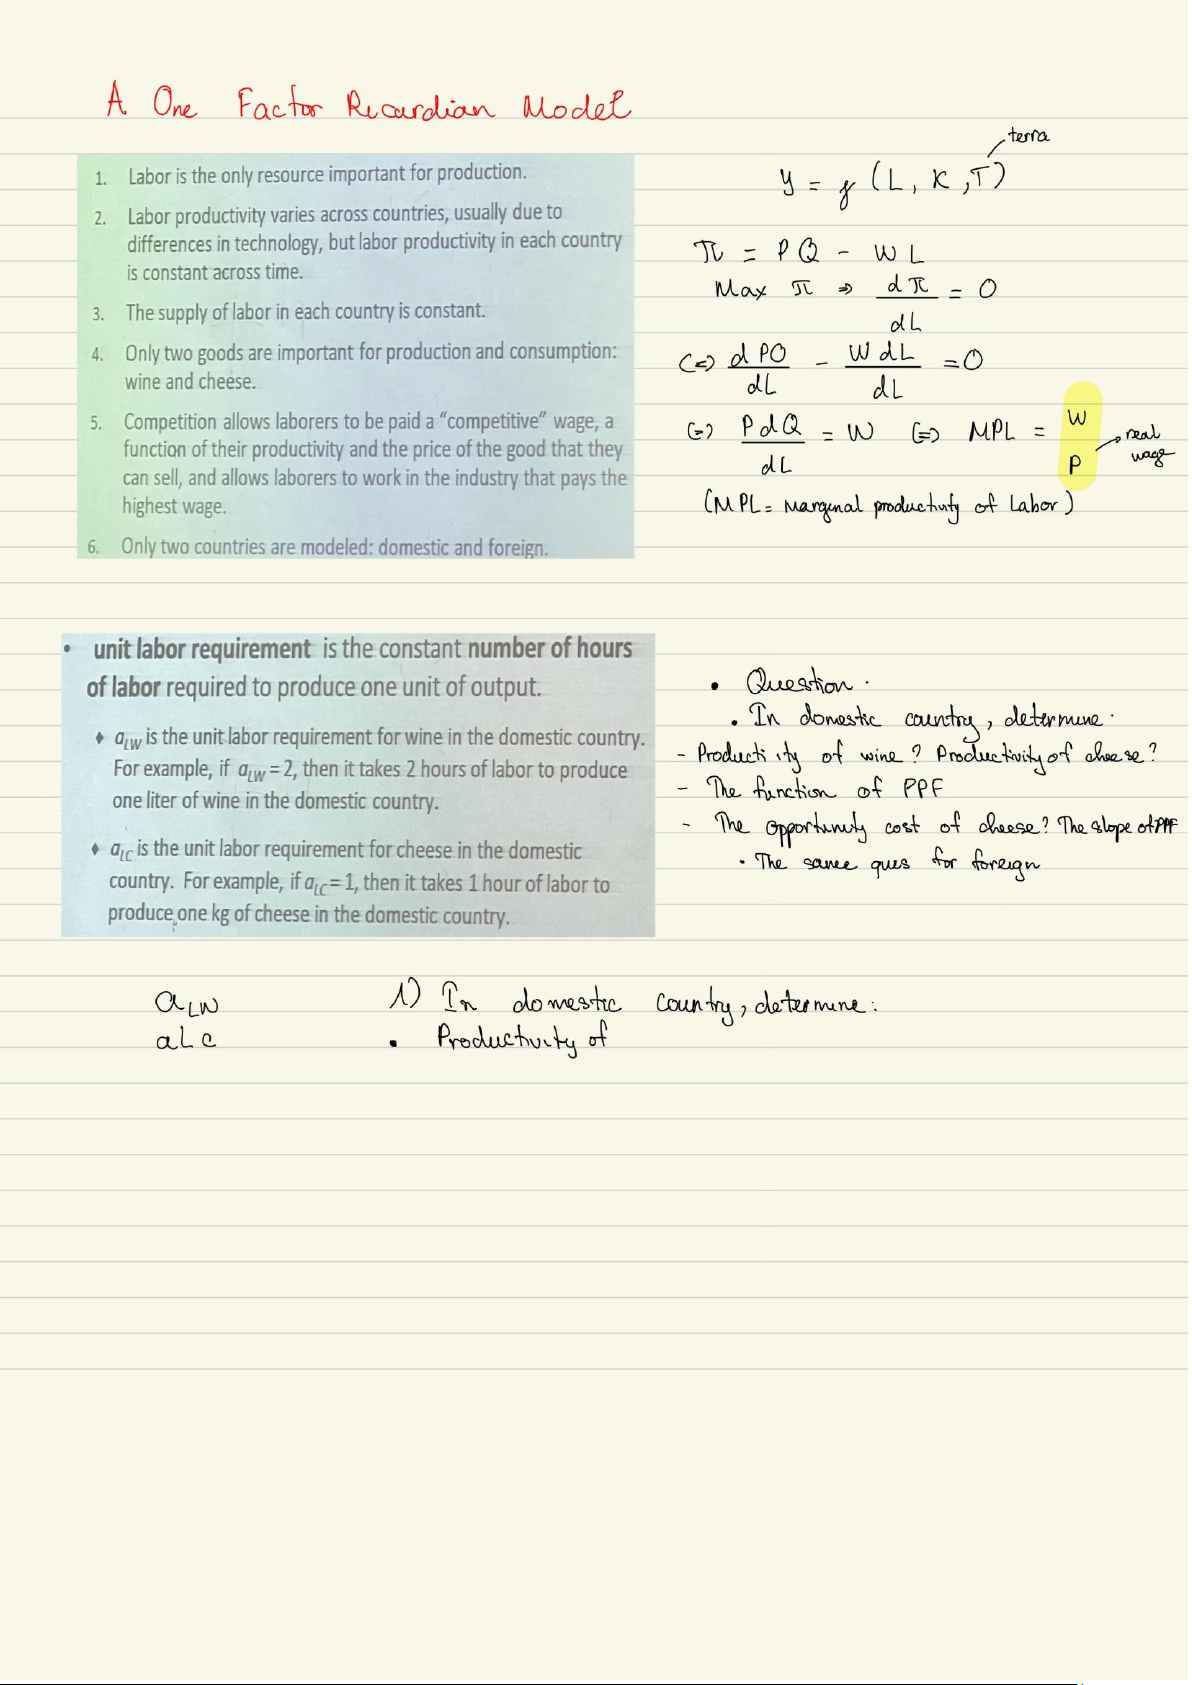 A One Factor Ricardian Model
1. Labor is the only resource important for production.
2. Labor productivity varies across countries, usually due to
differences in technology, but labor productivity in each country
is constant across time.
3. The supply of labor in each country is constant.
4. Only two goods are important for production and consumption:
wine and cheese.
5. Competition allows laborers to be paid a “competitive” wage, a
function of their productivity and the price of the good that they
can sell, and allows laborers to work in the industry that pays the
highest wage.
6. Only two countries are modeled: domestic and foreign.
terra
y = f (L, K, T)
π = PQ - WL
Max π ⇒ dπ/dL = 0
(=) dPQ/dL - WdL/dL = 0
(=) PdQ/dL = W (=) MPL = W/P
real
wage
(MPL = Marginal productivity of Labor)
• unit labor requirement is the constant number of hours
of labor required to produce one unit of output.
♦ aLW is the unit labor requirement for wine in the domestic country.
For example, if aLW = 2, then it takes 2 hours of labor to produce
one liter of wine in the domestic country.
♦ aLC is the unit labor requirement for cheese in the domestic
country. For example, if aLC = 1, then it takes 1 hour of labor to
produce one kg of cheese in the domestic country.
• Question.
• In domestic country, determine.
- Productivity of wine? Productivity of cheese?
- The function of PPF
- The opportunity cost of cheese? The slope of PPF
• The same ques for foreign
aLW
aLc
1) In domestic country, determine:
• Productivity of